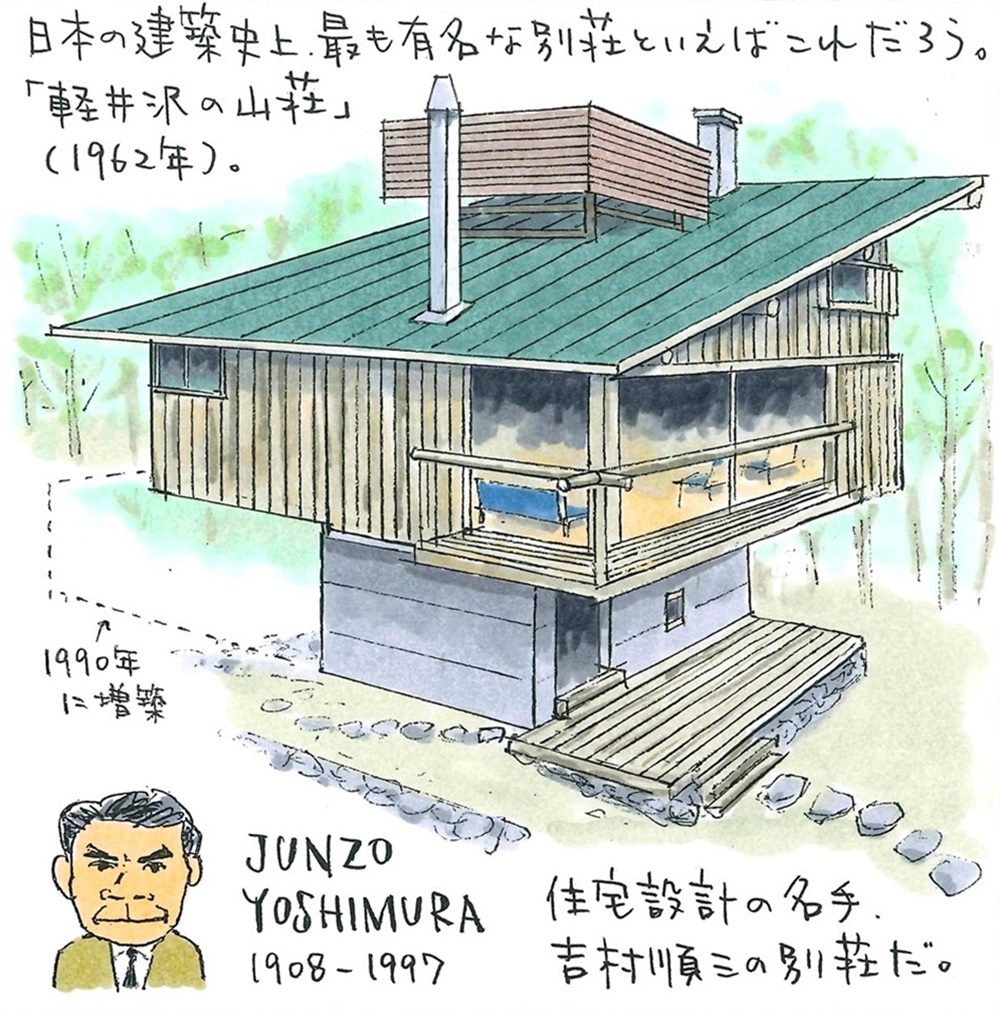 日本の建築史上、最も有名な別荘といえばこれだろう。
「軽井沢の山荘」
(1962年)。
1990年
に増築
JUNZO
YOSHIMURA
1908-1997
住宅設計の名手、
吉村順三の別荘だ。